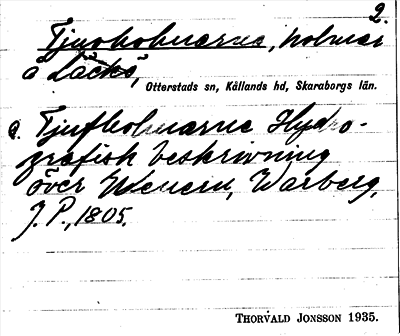 2.
Tjuvholmarna, holmar
å Läckö,
Otterstads sn, Kållands hd, Skaraborgs län.
a. Tjufholmarne Hydro-
grafisk beskrivning
över Wenern, Warberg,
J. P., 1805.
THORVALD JONSSON 1935.